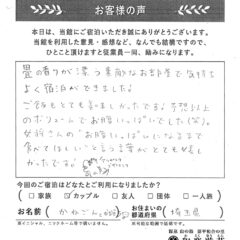 お客様の声
本日は、当館にご宿泊いただき誠にありがとうございます。
当館を利用した意見・感想など、なんでも結構ですので、
ひとこと頂けますと従業員一同、励みになります。
畳の香りが漂う素敵なお部屋で気持ち
よく宿泊ができました。
ごはんもとても美味しかったです。予想以上
のボリュームでお腹いっぱいでしたば)。
女将さんの"お腹いっぱいになるまで
食べてほしい"と言う言葉がとても嬉し
かったです。
今回のご宿泊はどなたとご利用になりましたか？
□家族 ☑カップル □友人 □団体 □一人旅
お名前 かねごん
お住まいの都道府県 埼玉県